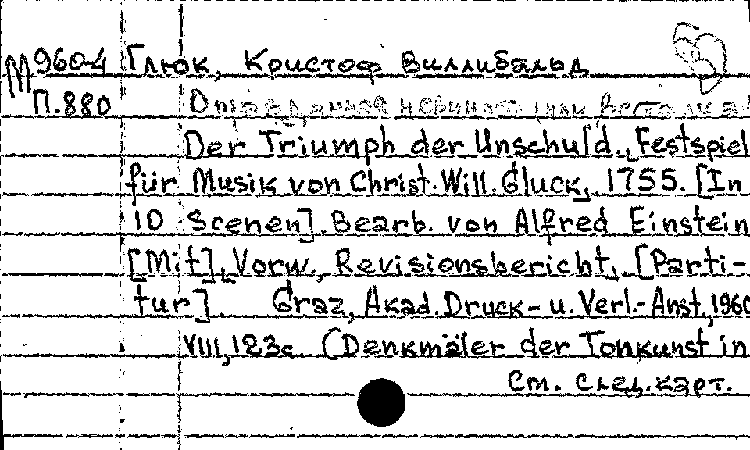 М 960-4 Глюк, Кристоф Виллибальд
П.880
Der Triumph der Unschuld., Festspiel
für Musik von Christ. Will. Gluck, 1755. [In
10 Scenen]. Bearb. von Alfred Einstein
[Mit], Vorw., Revisionsbericht, [Parti-
tur]. Graz, Akad. Druck- u. Verl.-Anst., 1960
VIII, 123c (Denkmäler der Tonkunst in
Ст. след. карт.